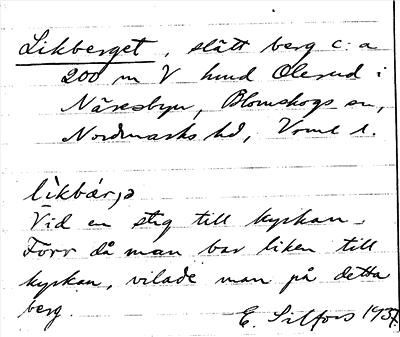 Likberget, slätt berg c:a
200 m V hmd Olerud i
Näresbyn, Blomskogs sn,
Nordmarks hd, Vrml l.
lìkbár,ə
Vid en stig till kyrkan.
Förr då man bar liken till
kyrkan, vilade man på detta
berg.
E. Silfors 1937.